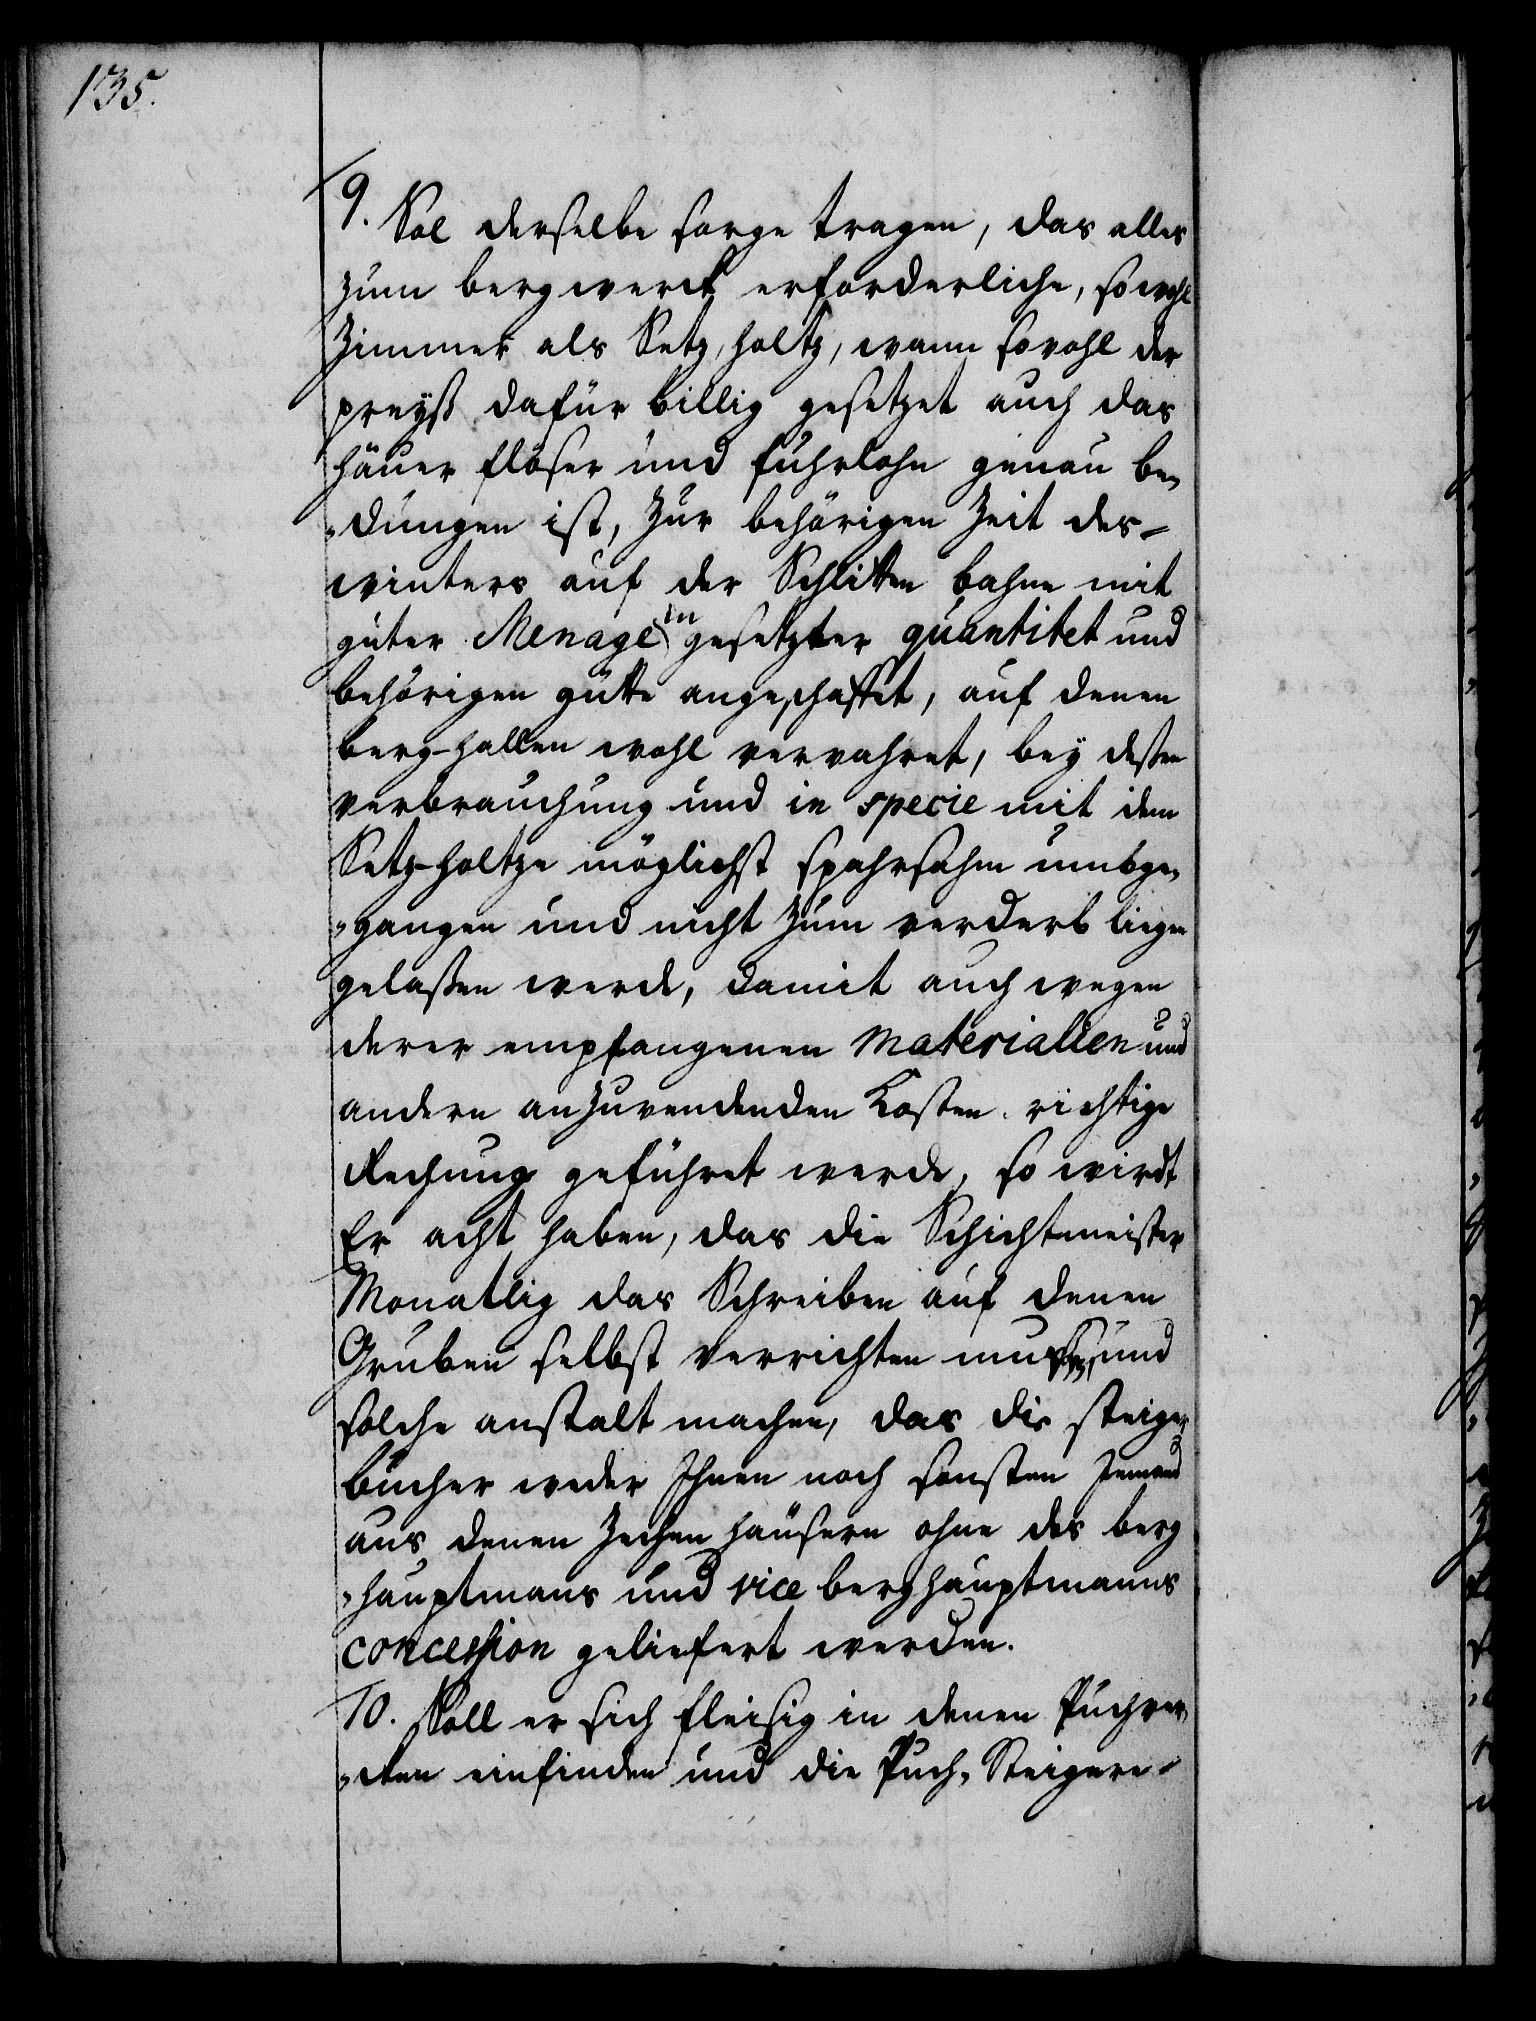 135.
9. Sol derselbe sorge tragen, das alles
zum bergwerck erforderliche, sowohl
Zimmer als Setz, holtz, wann sowohl der
preyß dafür billig gesetzet auch das
häuer flöser und fuhrlohn genau be„
„dungen ist, zur behörigen Zeit des„
winters auf der Schlitten bahne mit
guter Menage in gesetzter quantitet und
behörigen gütte angeschaffet, auf denen
berg-hallen wohl verwahret, bey deßen
verbrauchung und in specie mit dem
Setz-holtze möglichst spahrsahm umbge„
„gangen und nicht zum verderb liegen
gelaßen werde, damit auch wegen
derer empfangenen Materialien und
andern anzuwendenden Kosten richtige
Rechnung geführet werde, so wirdt
Er acht haben, das die Schichtmeister
Monatlig das Schreiben auf denen
Gruben selbst verrichten mussen, und
solche anstalt machen, das die steiger
bücher weder Ihnen noch sonsten Jemand
aus denen Zechen häusern ohne des berg
„hauptmans und vice berghauptmanns
concession geliefert werden.
10. Soll er sich fleisig in denen Puchwer„
„cken einfinden und die Puch, Steigere„